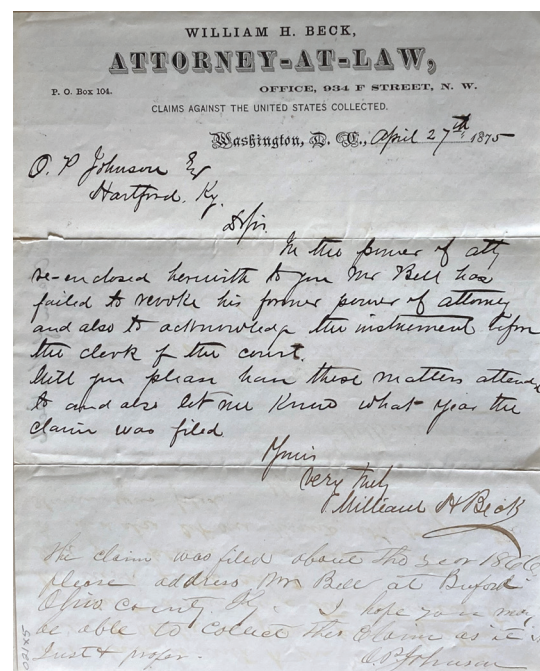 WILLIAM H. BECK,
ATTORNEY-AT-LAW,
P. O. Box 104. OFFICE, 934 F STREET, N. W.
CLAIMS AGAINST THE UNITED STATES COLLECTED.
Washington, D. C., April 27th 1875
O. P Johnson Esq
Hartford. Ky.
D Sir
In the power of atty
re-enclosed herewith to you Mr Bell has
failed to revoke his former power of attorney
and also to acknowledge the instrument before
the clerk of the court.
Will you please have these matters attended
to and also let me know what year the
claim was filed
Yours
very truly
William H Beck
The claim was filed about the year 1866
please address Mr Bell at Buford
Ohio county Ky. I hope you may
be able to collect this claim as it is
Just & proper.
O. P. Johnson